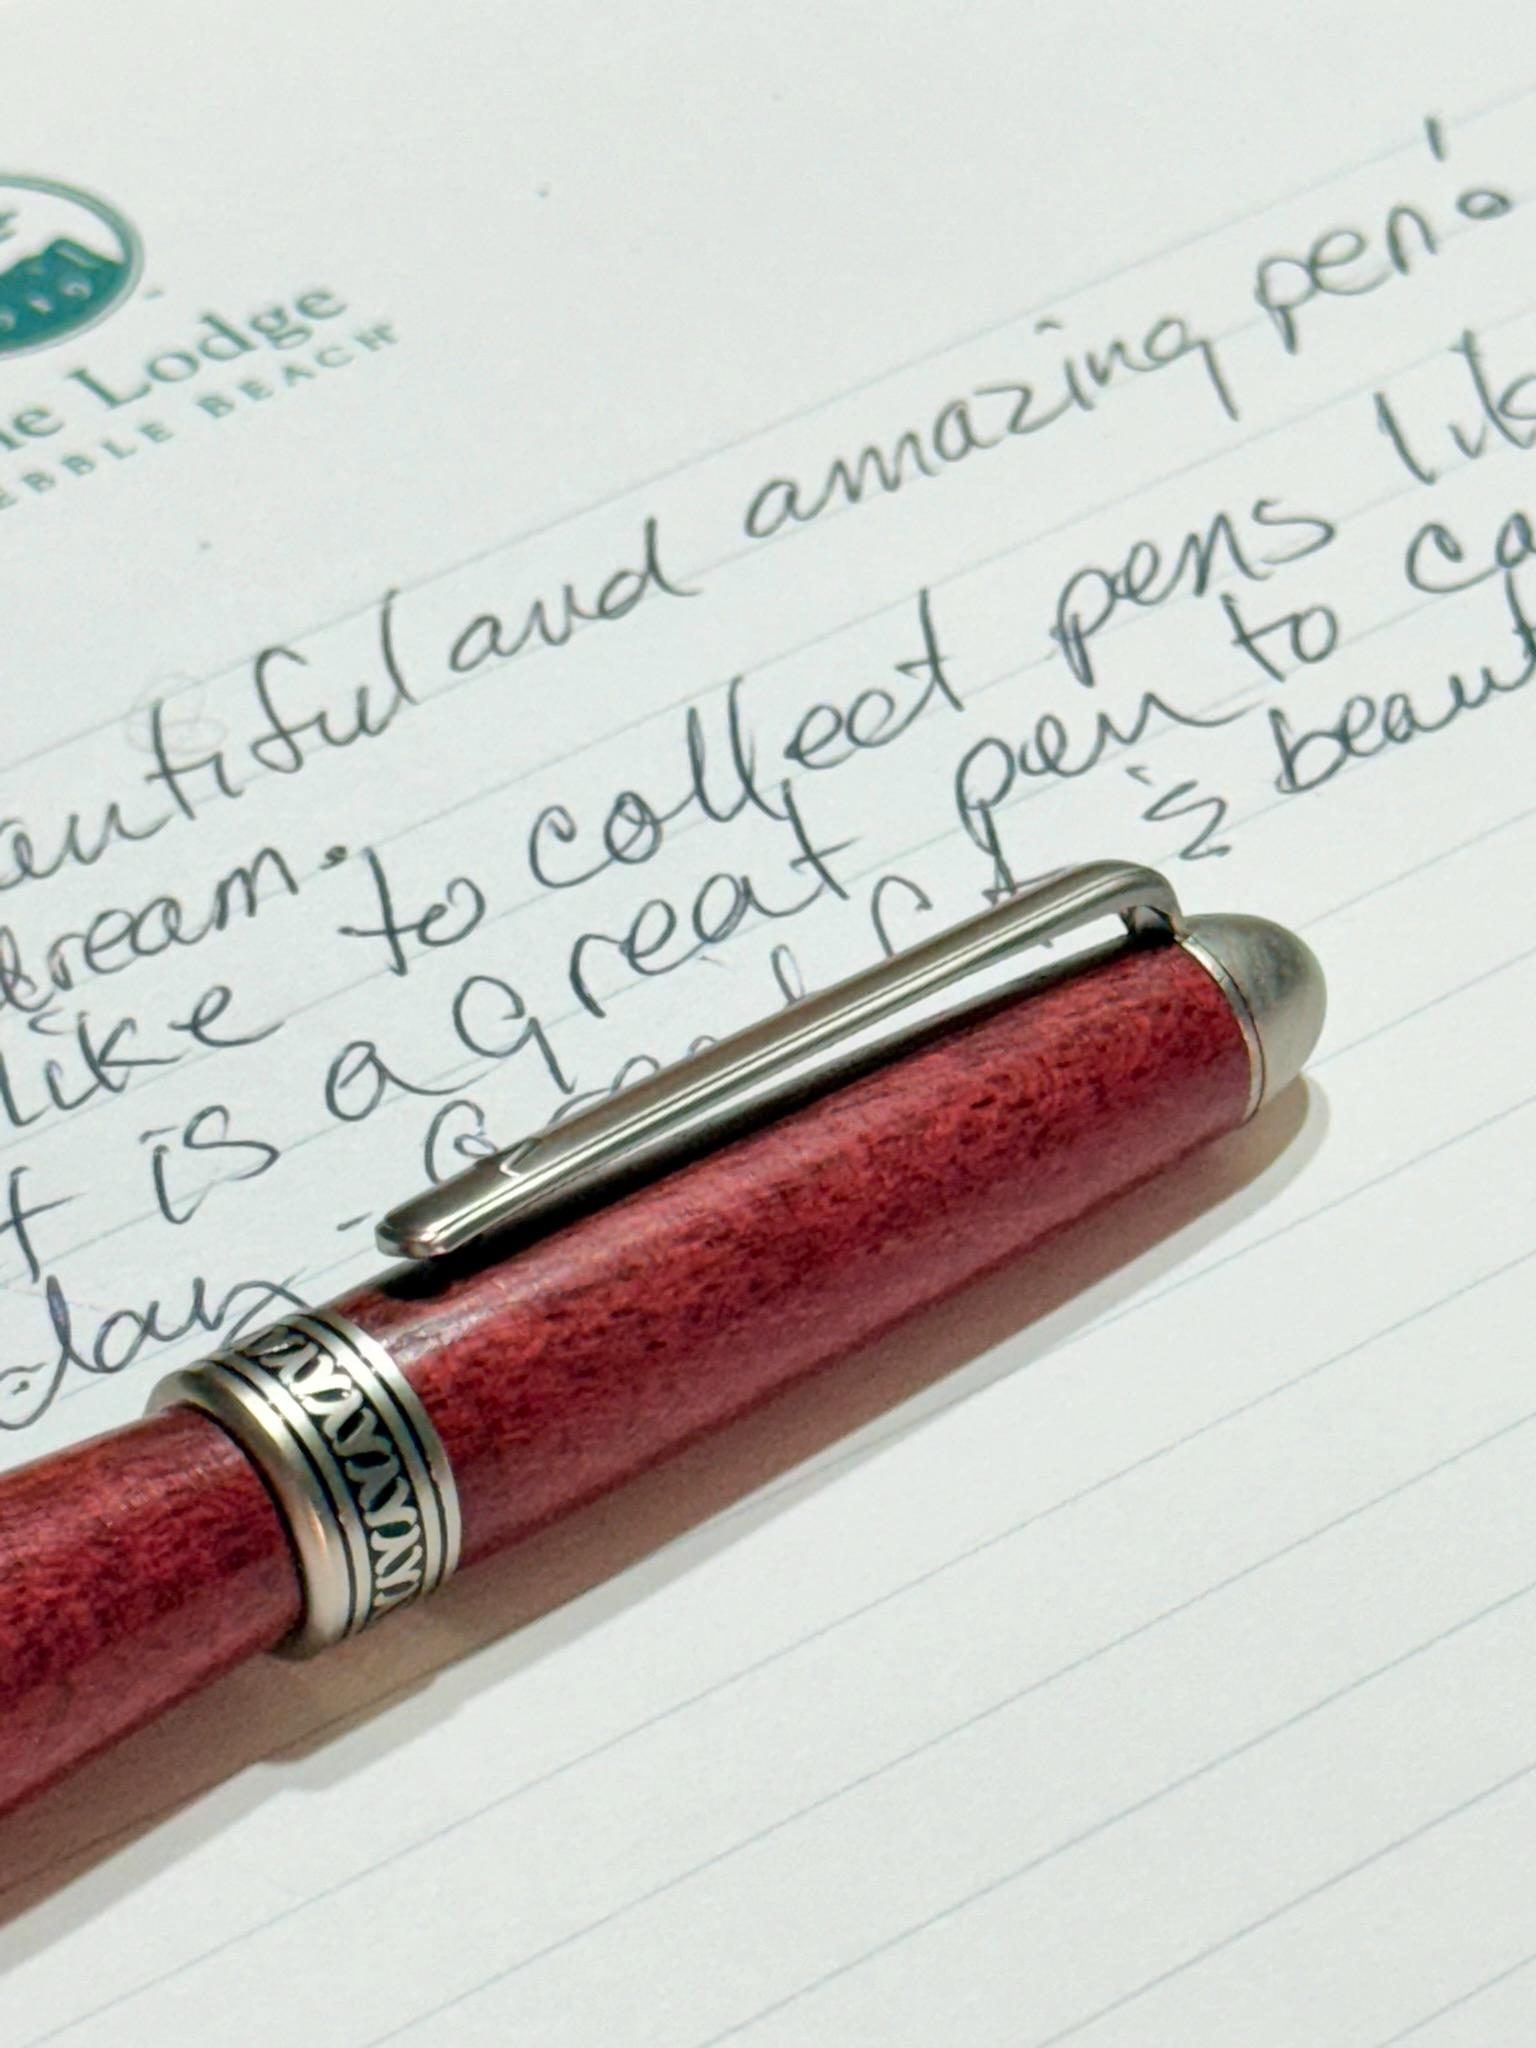 he Lodge
EBBLE BEACH
autiful and amazing pen!
dream.
like to collect pens lik
t is a great pen to ca
day - is beaut